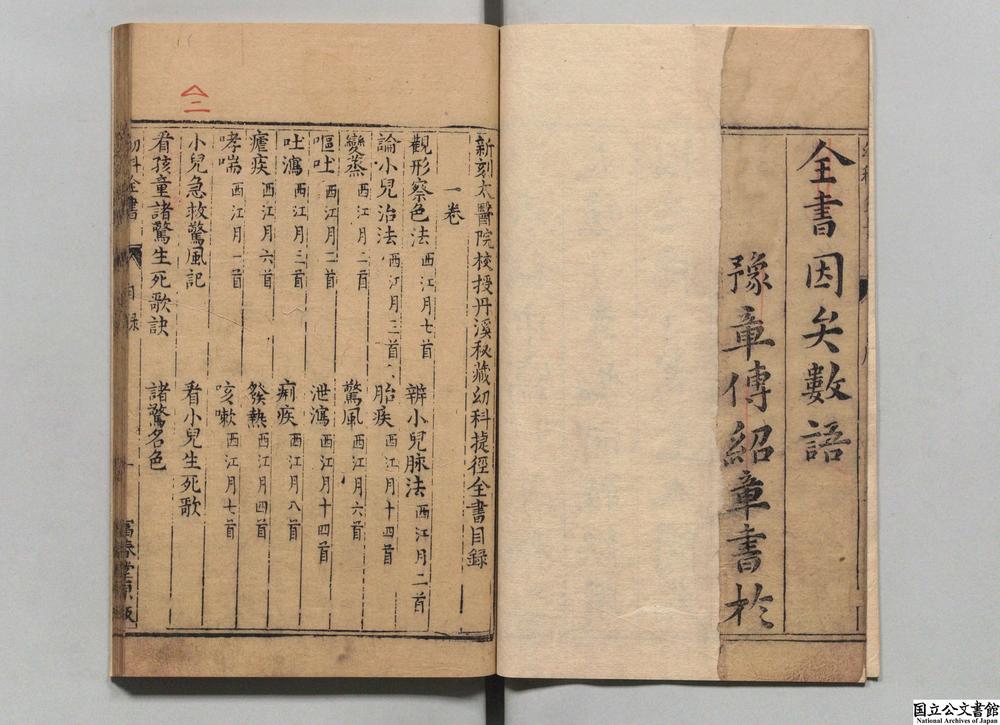 全書因矣數語
豫章傅紹章書於
新刻太醫院校授丹溪秘藏幼科捷徑全書目錄
一卷
觀形察色法 西江月七首 辨小兒脉法 西江月二首
論小兒治法 西江月三首 胎疾 西江月十四首
變蒸 西江月二首 驚風 西江月六首
嘔吐 西江月二首 泄瀉 西江月十四首
吐瀉 西江月三首 痢疾 西江月八首
瘧疾 西江月六首 發熱 西江月四首
哮喘 西江月一首 咳嗽 西江月七首
小兒急救驚風記 看小兒生死歌
看孩童諸驚生死歌訣 諸驚名色
幼科全書 目錄 一 富春堂原板
二
国立公文書館
National Archives of Japan